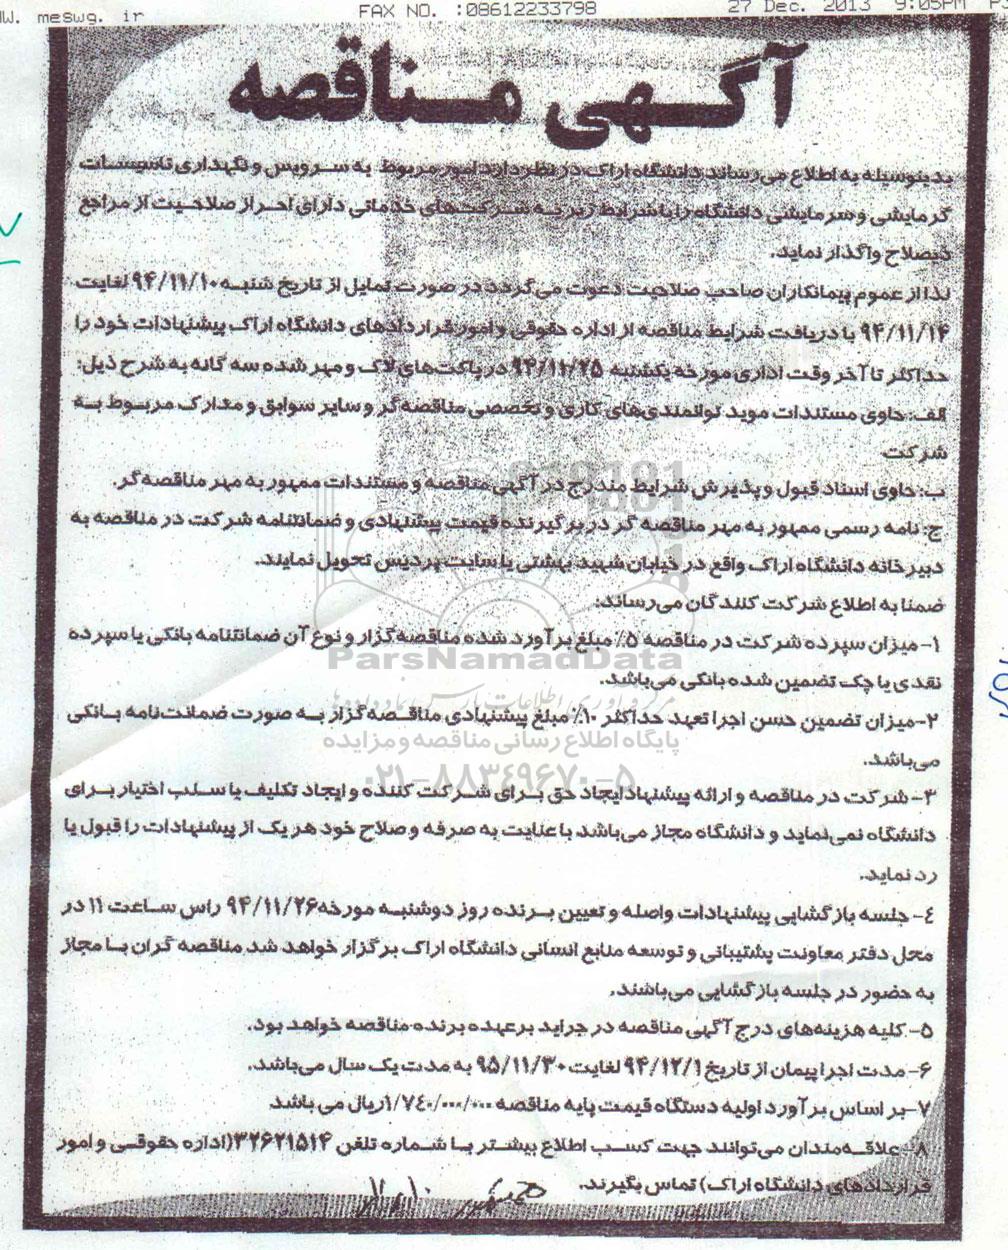 HW. meswg. ir FAX NO. :08612233798 27 Dec. 2013 9:05PM P3
آگهی مناقصه
بدینوسیله به اطلاع می‌رساند دانشگاه اراک در نظر دارد امور مربوط به سرویس و نگهداری تاسیسات
گرمایشی و سرمایشی دانشگاه را با شرایط زیر به شرکت‌های خدماتی دارای احراز صلاحیت از مراجع
ذیصلاح واگذار نماید.
لذا از عموم پیمانکاران صاحب صلاحیت دعوت می‌گردد در صورت تمایل از تاریخ شنبه ۹۴/۱۱/۱۰ لغایت
۹۴/۱۱/۱۴ با دریافت شرایط مناقصه از اداره حقوقی و امور قراردادهای دانشگاه اراک پیشنهادات خود را
حداکثر تا آخر وقت اداری مورخه یکشنبه ۹۴/۱۱/۲۵ در پاکت‌های لاک و مهر شده سه گانه به شرح ذیل:
الف: حاوی مستندات موید توانمندی‌های کاری و تخصصی مناقصه‌گر و سایر سوابق و مدارک مربوط به
شرکت
ب: حاوی اسناد قبول و پذیرش شرایط مندرج در آگهی مناقصه و مستندات ممهور به مهر مناقصه‌گر.
ج: نامه رسمی ممهور به مهر مناقصه گر در برگیرنده قیمت پیشنهادی و ضمانتنامه شرکت در مناقصه به
دبیرخانه دانشگاه اراک واقع در خیابان شهید بهشتی یا سایت پردیس تحویل نمایند.
ضمنا به اطلاع شرکت کنندگان می‌رساند:
۱- میزان سپرده شرکت در مناقصه ۵٪ مبلغ برآورد شده مناقصه‌گزار و نوع آن ضمانتنامه بانکی یا سپرده
نقدی یا چک تضمین شده بانکی می‌باشد.
ParsNamadData
مرکز فرآوری اطلاعات پارس نماد داده‌ها
۲-میزان تضمین حسن اجرا تعهد حداکثر ۱۰٪ مبلغ پیشنهادی مناقصه‌گزار به صورت ضمانت‌نامه بانکی
پایگاه اطلاع رسانی مناقصه و مزایده
می‌باشد.
۰۲۱-۸۸۳۴۹۶۷۰-۵
۳- شرکت در مناقصه و ارائه پیشنهاد ایجاد حق برای شرکت کننده و ایجاد تکلیف یا سلب اختیار برای
دانشگاه نمی‌نماید و دانشگاه مجاز می‌باشد با عنایت به صرفه و صلاح خود هر یک از پیشنهادات را قبول یا
رد نماید.
۴- جلسه بازگشایی پیشنهادات واصله و تعیین برنده روز دوشنبه مورخه ۹۴/۱۱/۲۶ راس ساعت ۱۱ در
محل دفتر معاونت پشتیبانی و توسعه منابع انسانی دانشگاه اراک برگزار خواهد شد مناقصه گران با مجاز
به حضور در جلسه بازگشایی می‌باشند.
۵- کلیه هزینه‌های درج آگهی مناقصه در جراید بر عهده برنده مناقصه خواهد بود.
۶- مدت اجرا پیمان از تاریخ ۹۴/۱۲/۱ لغایت ۹۵/۱۱/۳۰ به مدت یک سال می‌باشد.
۷-بر اساس برآورد اولیه دستگاه قیمت پایه مناقصه ۱/۷۴۰/۰۰۰/۰۰۰ریال می باشد
۸- علاقه‌مندان می‌توانند جهت کسب اطلاع بیشتر با شماره تلفن ۳۲۶۲۱۵۱۴(اداره حقوقی و امور
قراردادهای دانشگاه اراک) تماس بگیرند.